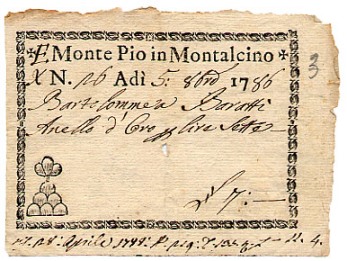 E, Monte Pio in Montalcino
N. 26 Adì 5: 8bre 1786
Bartolommea Baratti
Anello d'Oro lire Sette
£ 7:—
3
Aprile 1788: